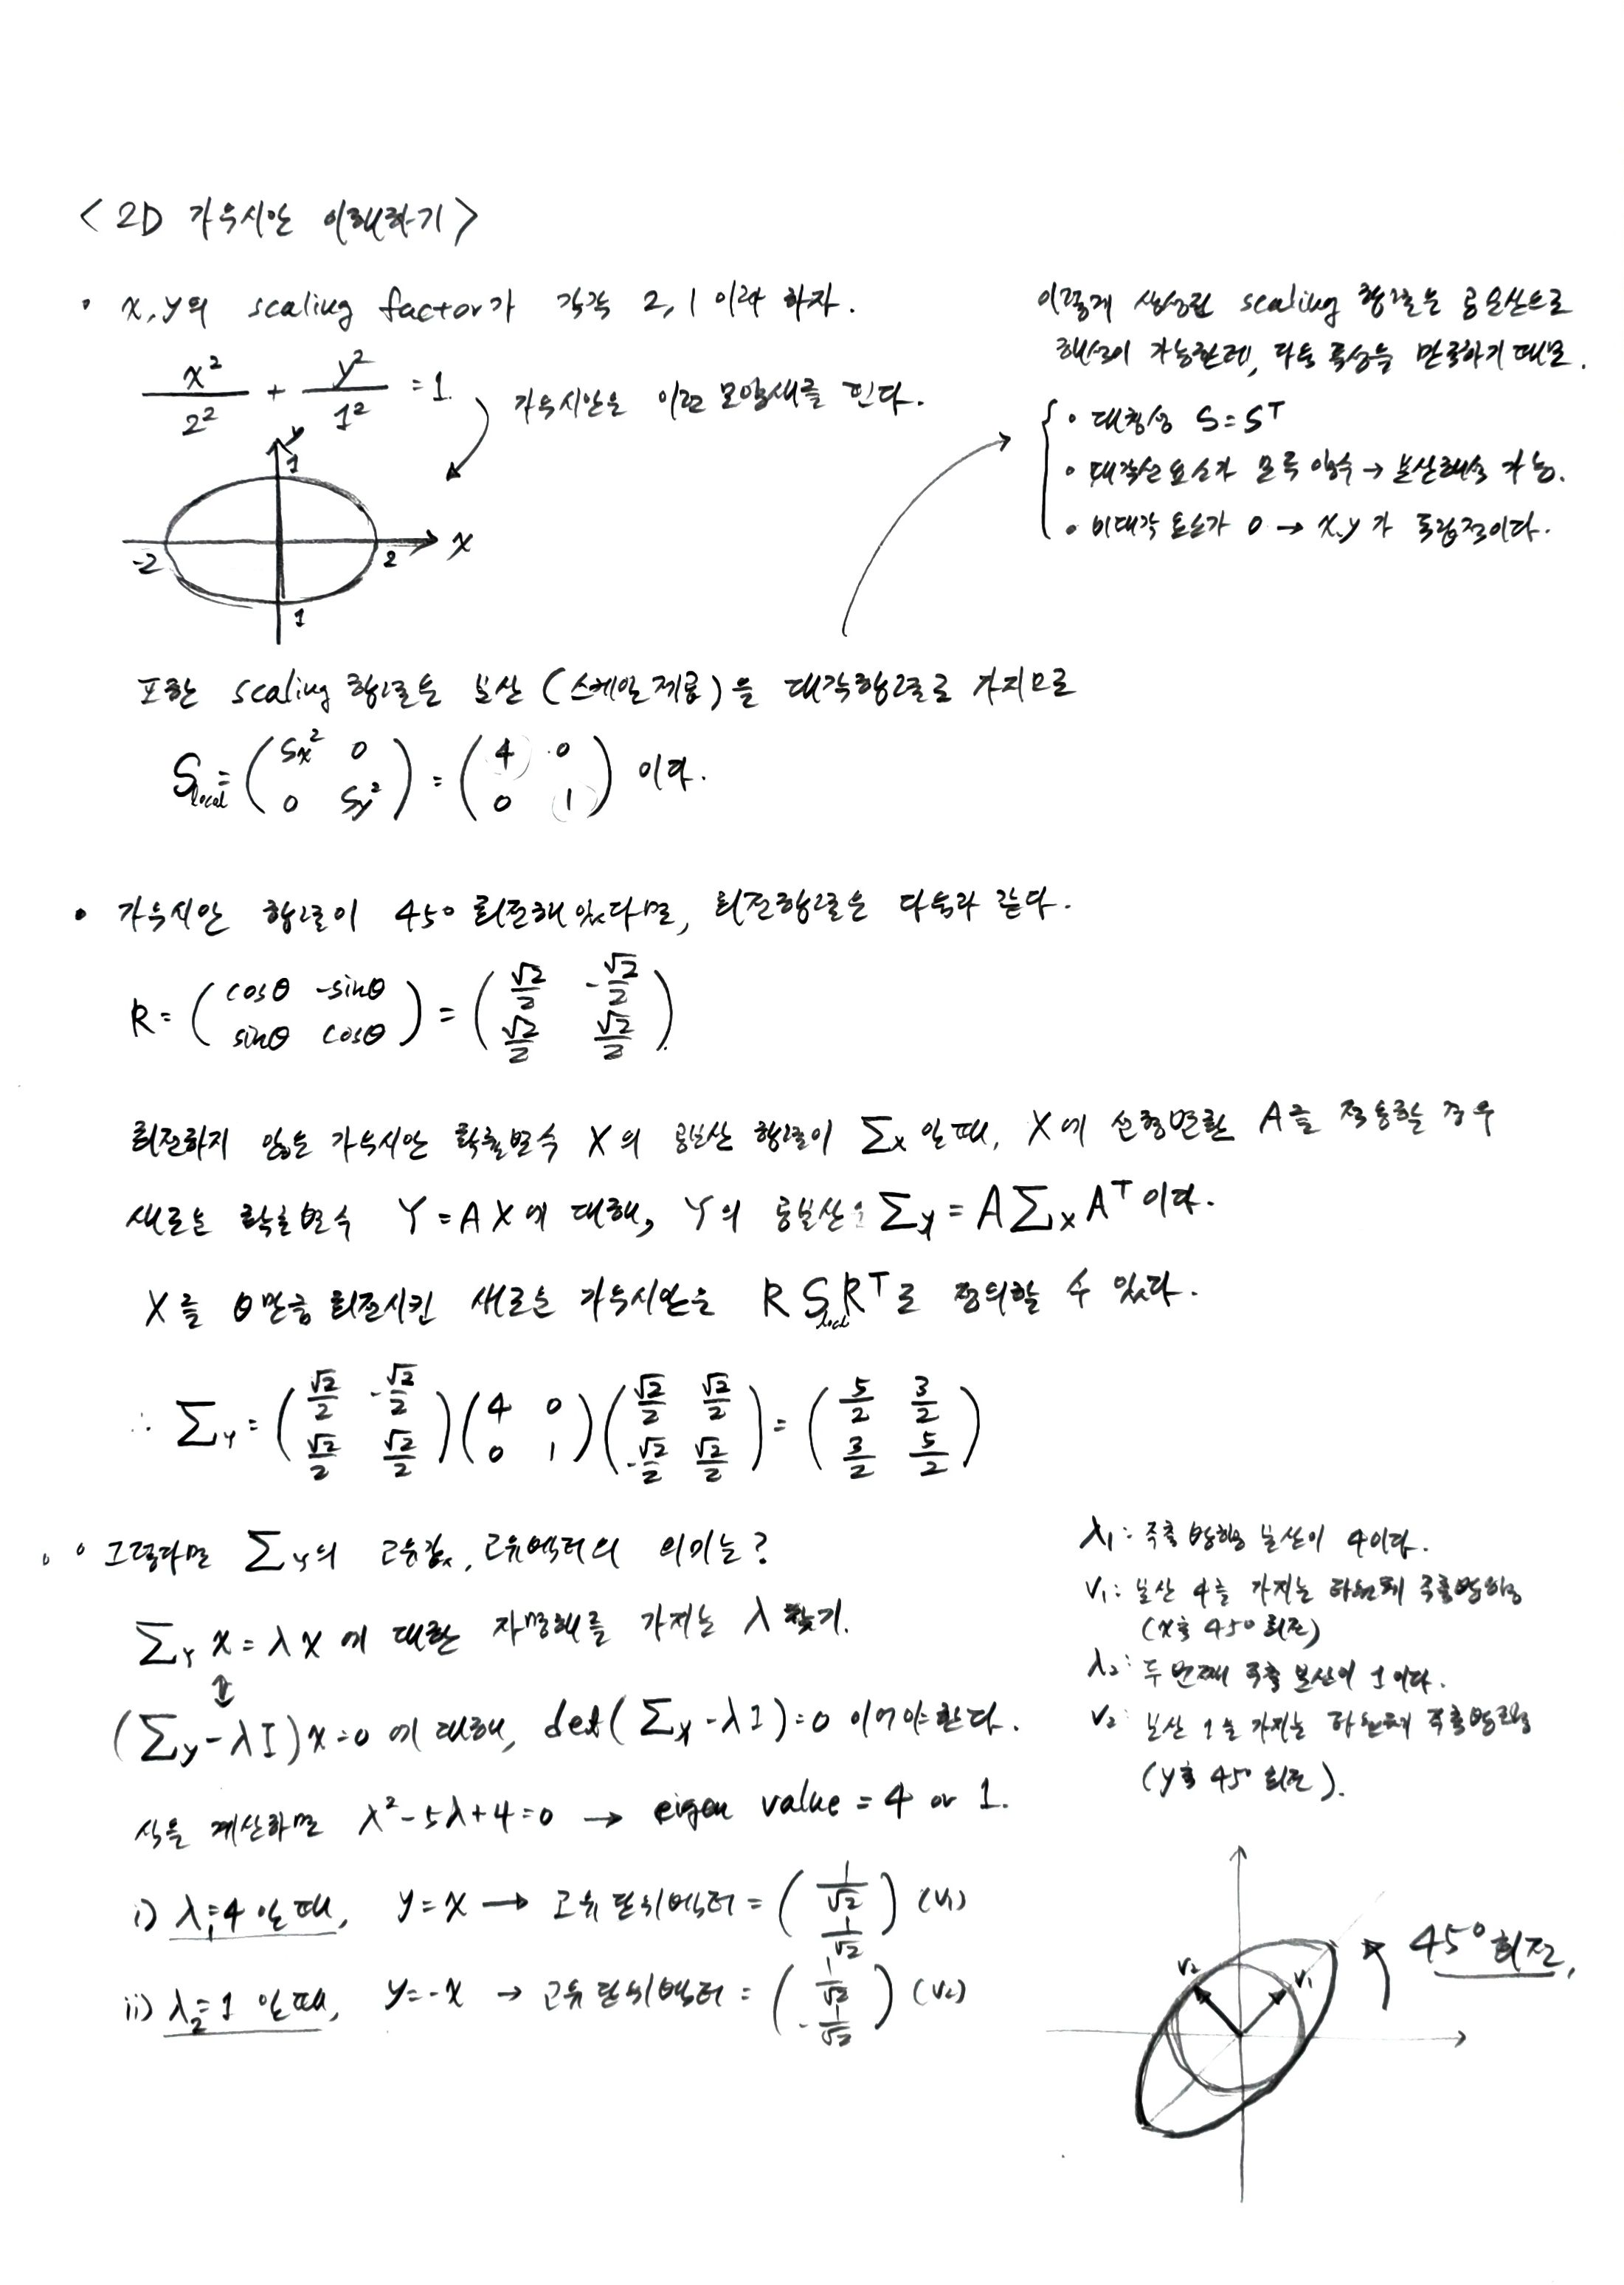 < 2D 가우시안 이해하기 >
• x, y의 scaling factor가 각각 2, 1 이라 하자.
x²/2² + y²/1² = 1
가우시안은 이런 모양새를 띈다.
y
1
-2 2 x
1
이렇게 생성된 scaling 행렬은 공분산으로
해석이 가능한데, 다음 특성을 만족하기 때문.
• 대칭성 S = Sᵀ
• 대각선 요소가 모두 양수 → 분산해석 가능.
• 비대각 요소가 0 → x, y가 독립적이다.
또한 scaling 행렬은 분산 (스케일 제곱)을 대각행렬로 가지므로
S_local = ( Sx² 0 ; 0 Sy² ) = ( 4 0 ; 0 1 ) 이다.
• 가우시안 행렬이 45° 회전해 있다면, 회전행렬은 다음과 같다.
R = ( cosθ -sinθ ; sinθ cosθ ) = ( √2/2 -√2/2 ; √2/2 √2/2 )
회전하지 않는 가우시안 확률변수 X의 공분산 행렬이 Σx 일 때, X에 선형변환 A를 적용할 경우
새로운 확률변수 Y = AX에 대해, Y의 공분산은 Σy = AΣxAᵀ 이다.
X를 θ만큼 회전시킨 새로운 가우시안은 R S_local Rᵀ로 정의할 수 있다.
∴ ΣY = ( √2/2 -√2/2 ; √2/2 √2/2 ) ( 4 0 ; 0 1 ) ( √2/2 √2/2 ; -√2/2 √2/2 ) = ( 5/2 3/2 ; 3/2 5/2 )
• 그렇다면 Σy의 고유값, 고유벡터의 의미는?
ΣY x = λx 에 대한 자명해를 가지는 λ 찾기.
⇕
(Σy - λI)x = 0 에 대해, det(Σy - λI) = 0 이어야 한다.
식을 계산하면 λ² - 5λ + 4 = 0 → eigen value = 4 or 1.
i) λ₁=4 일 때, y = x → 고유 단위벡터 = ( 1/√2 ; 1/√2 ) (V₁)
ii) λ₂=1 일 때, y = -x → 고유 단위벡터 = ( 1/√2 ; -1/√2 ) (V₂)
λ₁: 주축 방향 분산이 4이다.
V₁: 분산 4를 가지는 타원체 주축방향
(x축 45° 회전)
λ₂: 두 번째 주축 분산이 1이다.
V₂: 분산 1을 가지는 타원체 주축방향
(y축 45° 회전).
V₂ V₁
45° 회전,